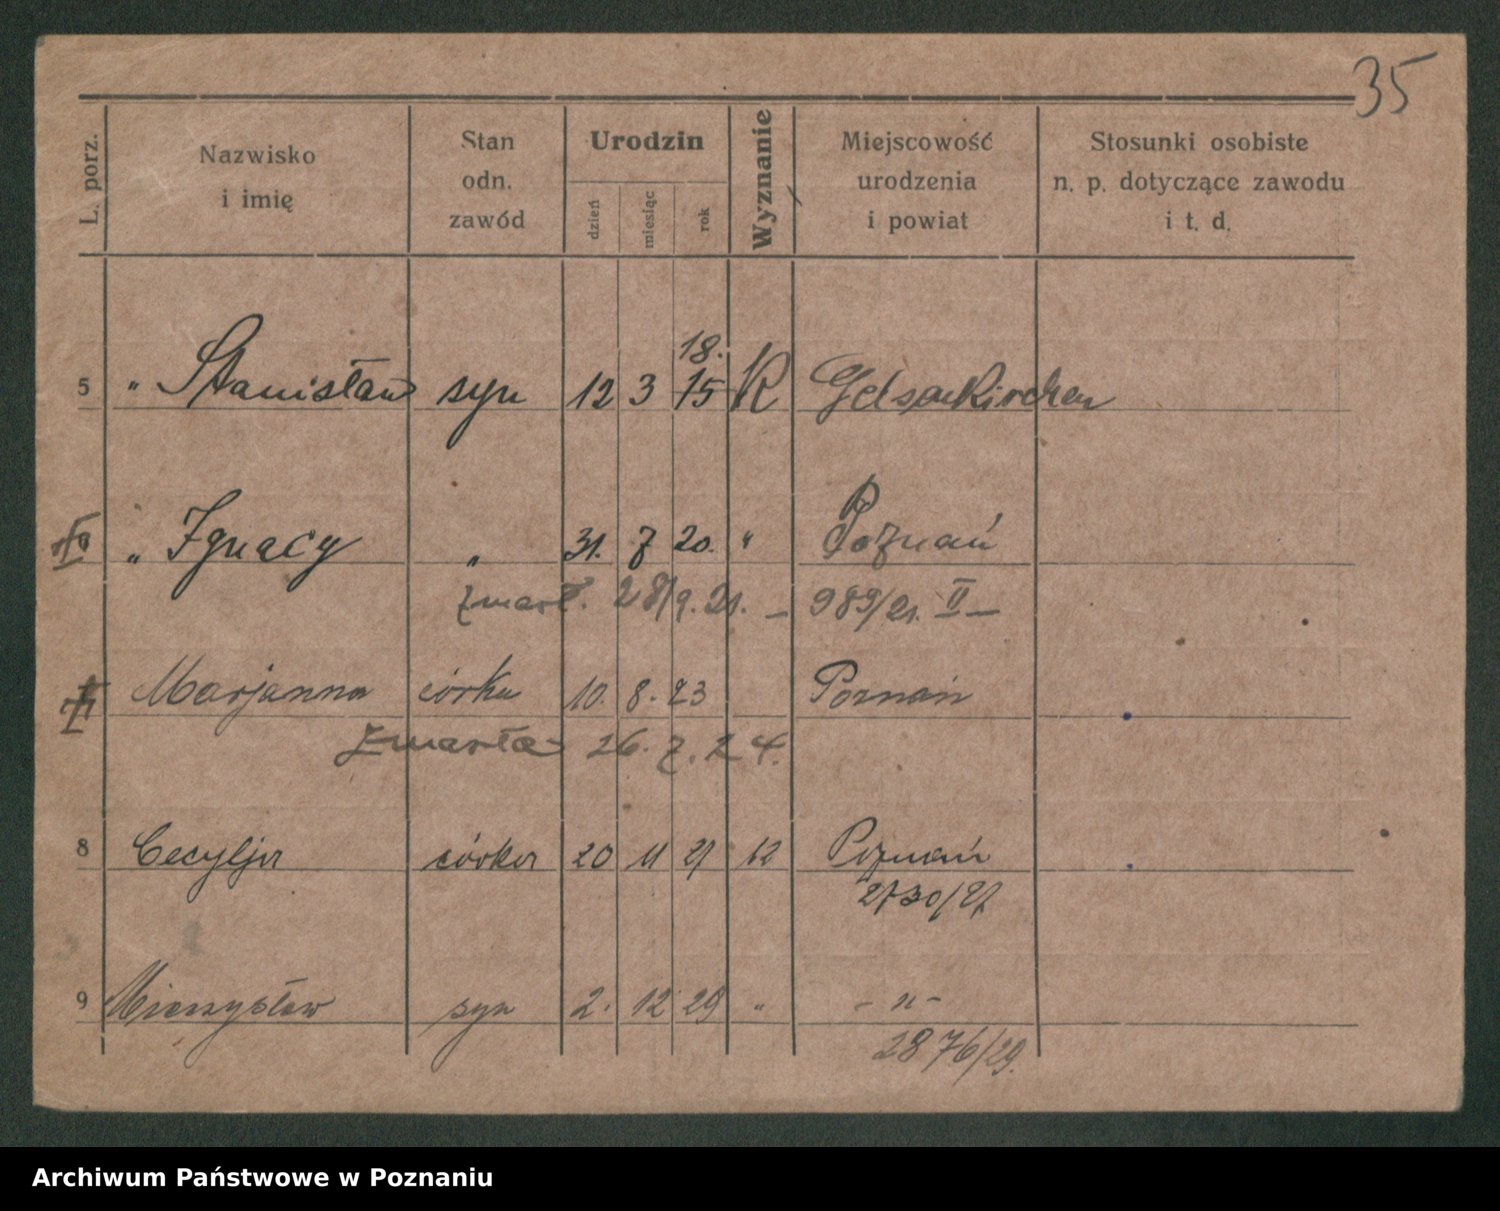 35
L. porz.
Nazwisko i imię
Stan odn. zawód
Urodzin
dzień
miesiąc
rok
Wyznanie
Miejscowość urodzenia i powiat
Stosunki osobiste n. p. dotyczące zawodu i t. d.
18.
5 " Stanisław syn 12 3 15 K Gelsenkirchen
" Ignacy " 31. 7 20. " Poznań
zmarł. 28/9. 21. — 989/21. II —
Marjanna córka 10. 8. 23 Poznań
Zmarła 26. 7. 24.
8 Cecylja córka 20 11 27 Poznań
2730/27
9 Mieczysław syn 2. 12 29 " - " -
2876/29.
Archiwum Państwowe w Poznaniu